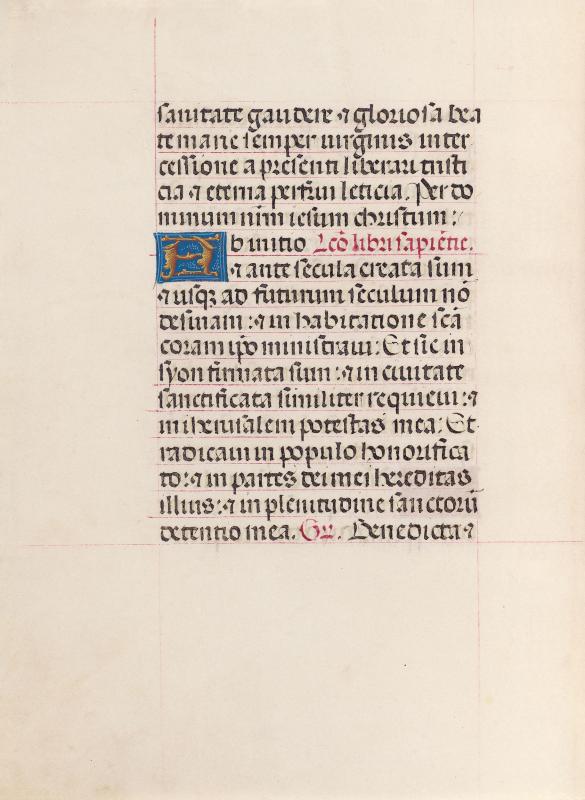 sanitate gaudere ⁊ gloriosa bea
te marie semper uirginis inter
cessione a presenti liberari tristi
cia ⁊ eterna perfrui leticia. Per do
minum nrm iesum christum:
Ab initio Lcō libri sapiētie.
⁊ ante secula creata sum
⁊ usqꝫ ad futurum seculum nō
desinam: ⁊ in habitatione scā
coram ipo ministraui: Et sic in
syon firmata sum: ⁊ in ciuitate
sanctificata similiter requieui: ⁊
in iherusalem potestas mea: Et
radicaui in populo honorifica
to: ⁊ in partes dei mei hereditas
illius: ⁊ in plenitudine sanctorū
detentio mea. Gr. Benedicta ⁊